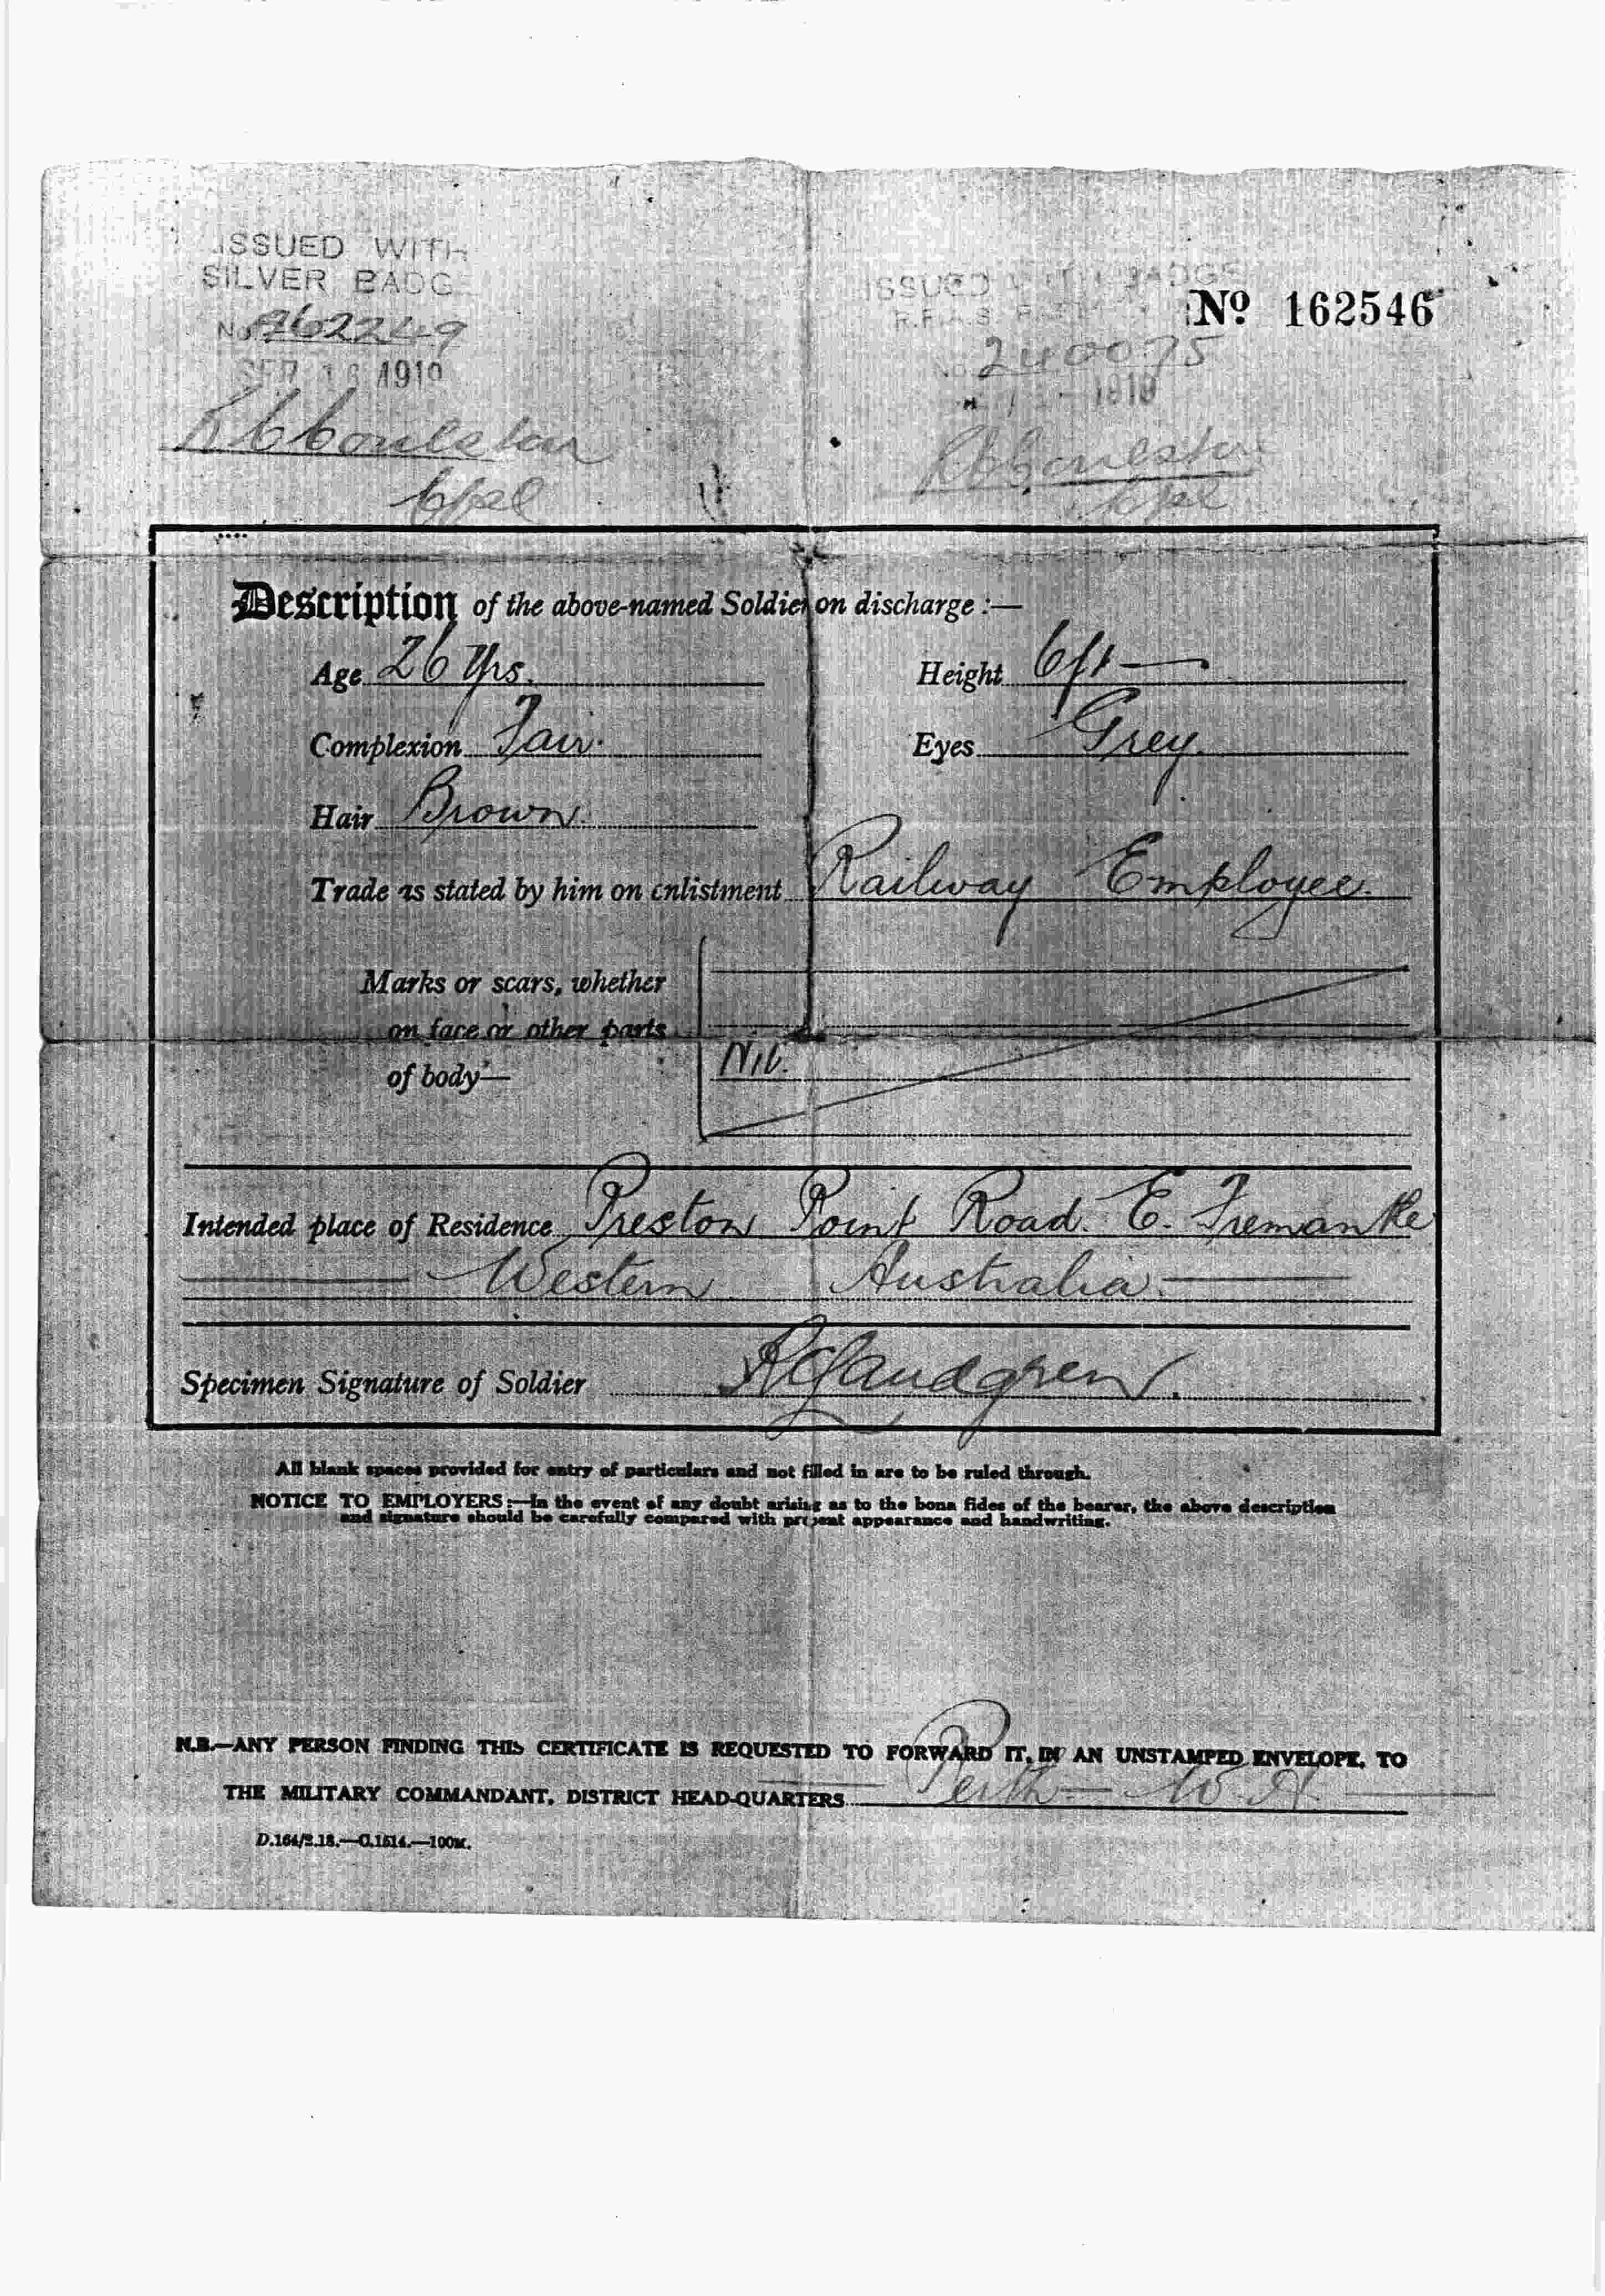 ISSUED WITH
SILVER BADGE
No 262249
SEP 16 1919
Cpl
ISSUED WITH BADGE
No 240075
1919
Cpl
No 162546
Description of the above-named Soldier on discharge :—
Age 26 Yrs.
Height 6ft —
Complexion Fair.
Eyes Grey.
Hair Brown.
Trade as stated by him on enlistment Railway Employee.
Marks or scars, whether
on face or other parts
of body—
Nil.
Intended place of Residence Preston Point Road. E. Fremantle
Western Australia.
Specimen Signature of Soldier
All blank spaces provided for entry of particulars and not filled in are to be ruled through.
NOTICE TO EMPLOYERS:—In the event of any doubt arising as to the bona fides of the bearer, the above description
and signature should be carefully compared with present appearance and handwriting.
N.B.—ANY PERSON FINDING THIS CERTIFICATE IS REQUESTED TO FORWARD IT, IN AN UNSTAMPED ENVELOPE, TO
THE MILITARY COMMANDANT, DISTRICT HEAD-QUARTERS Perth — W.A.
D.164/2.18.—C.1514.—100M.